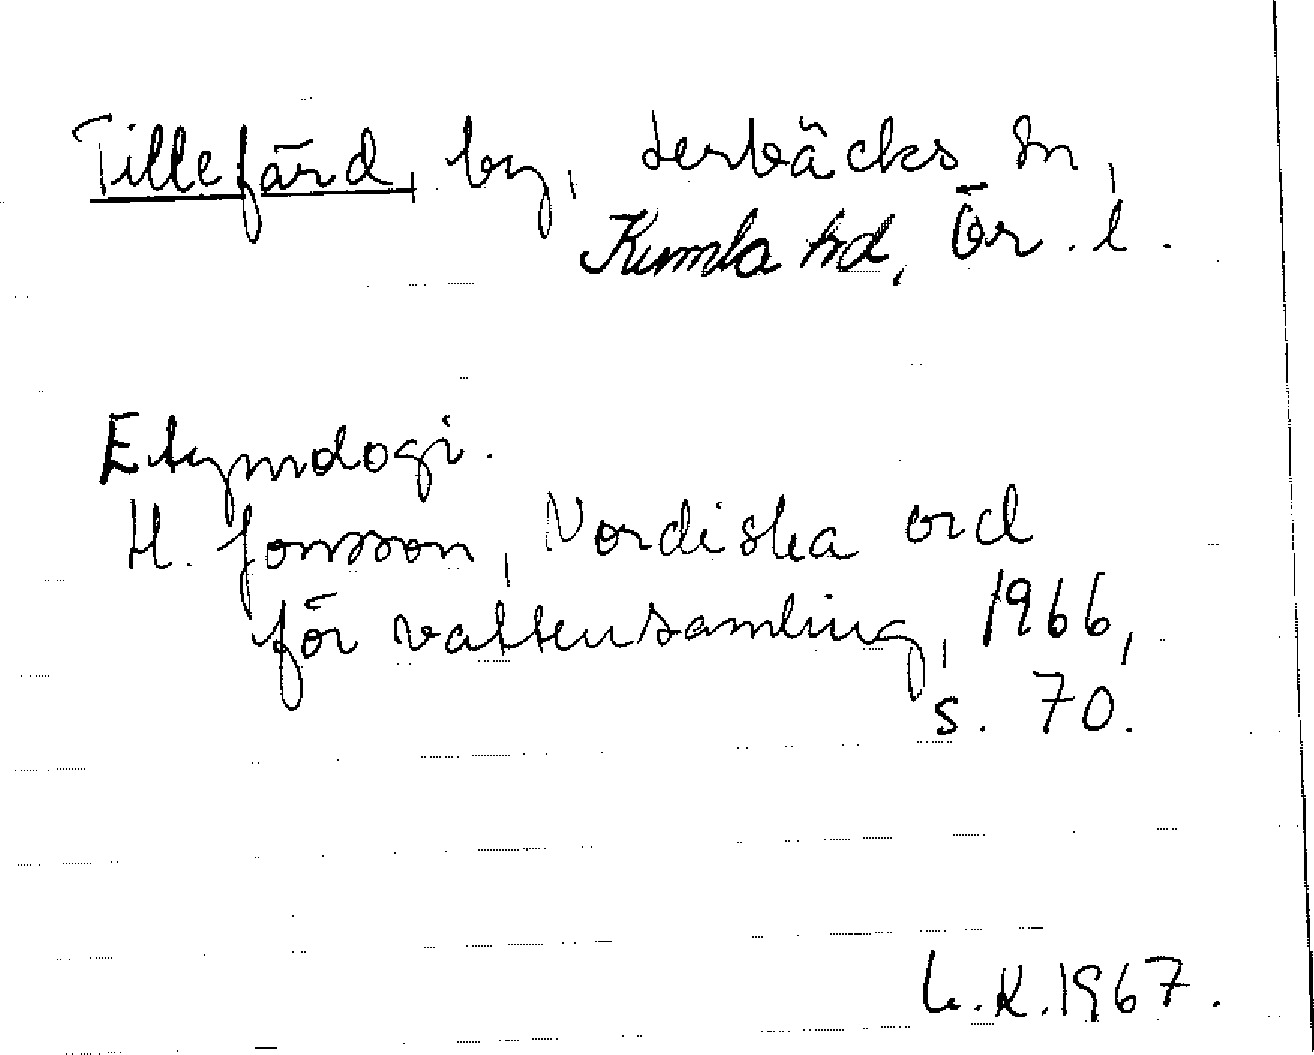 Tillefärd, by, Lerbäcks sn,
Kumla hd, Ör. l.
Etymologi.
H. Jonsson, Nordiska ord
för vattensamling, 1966,
s. 70.
L. K. 1967.